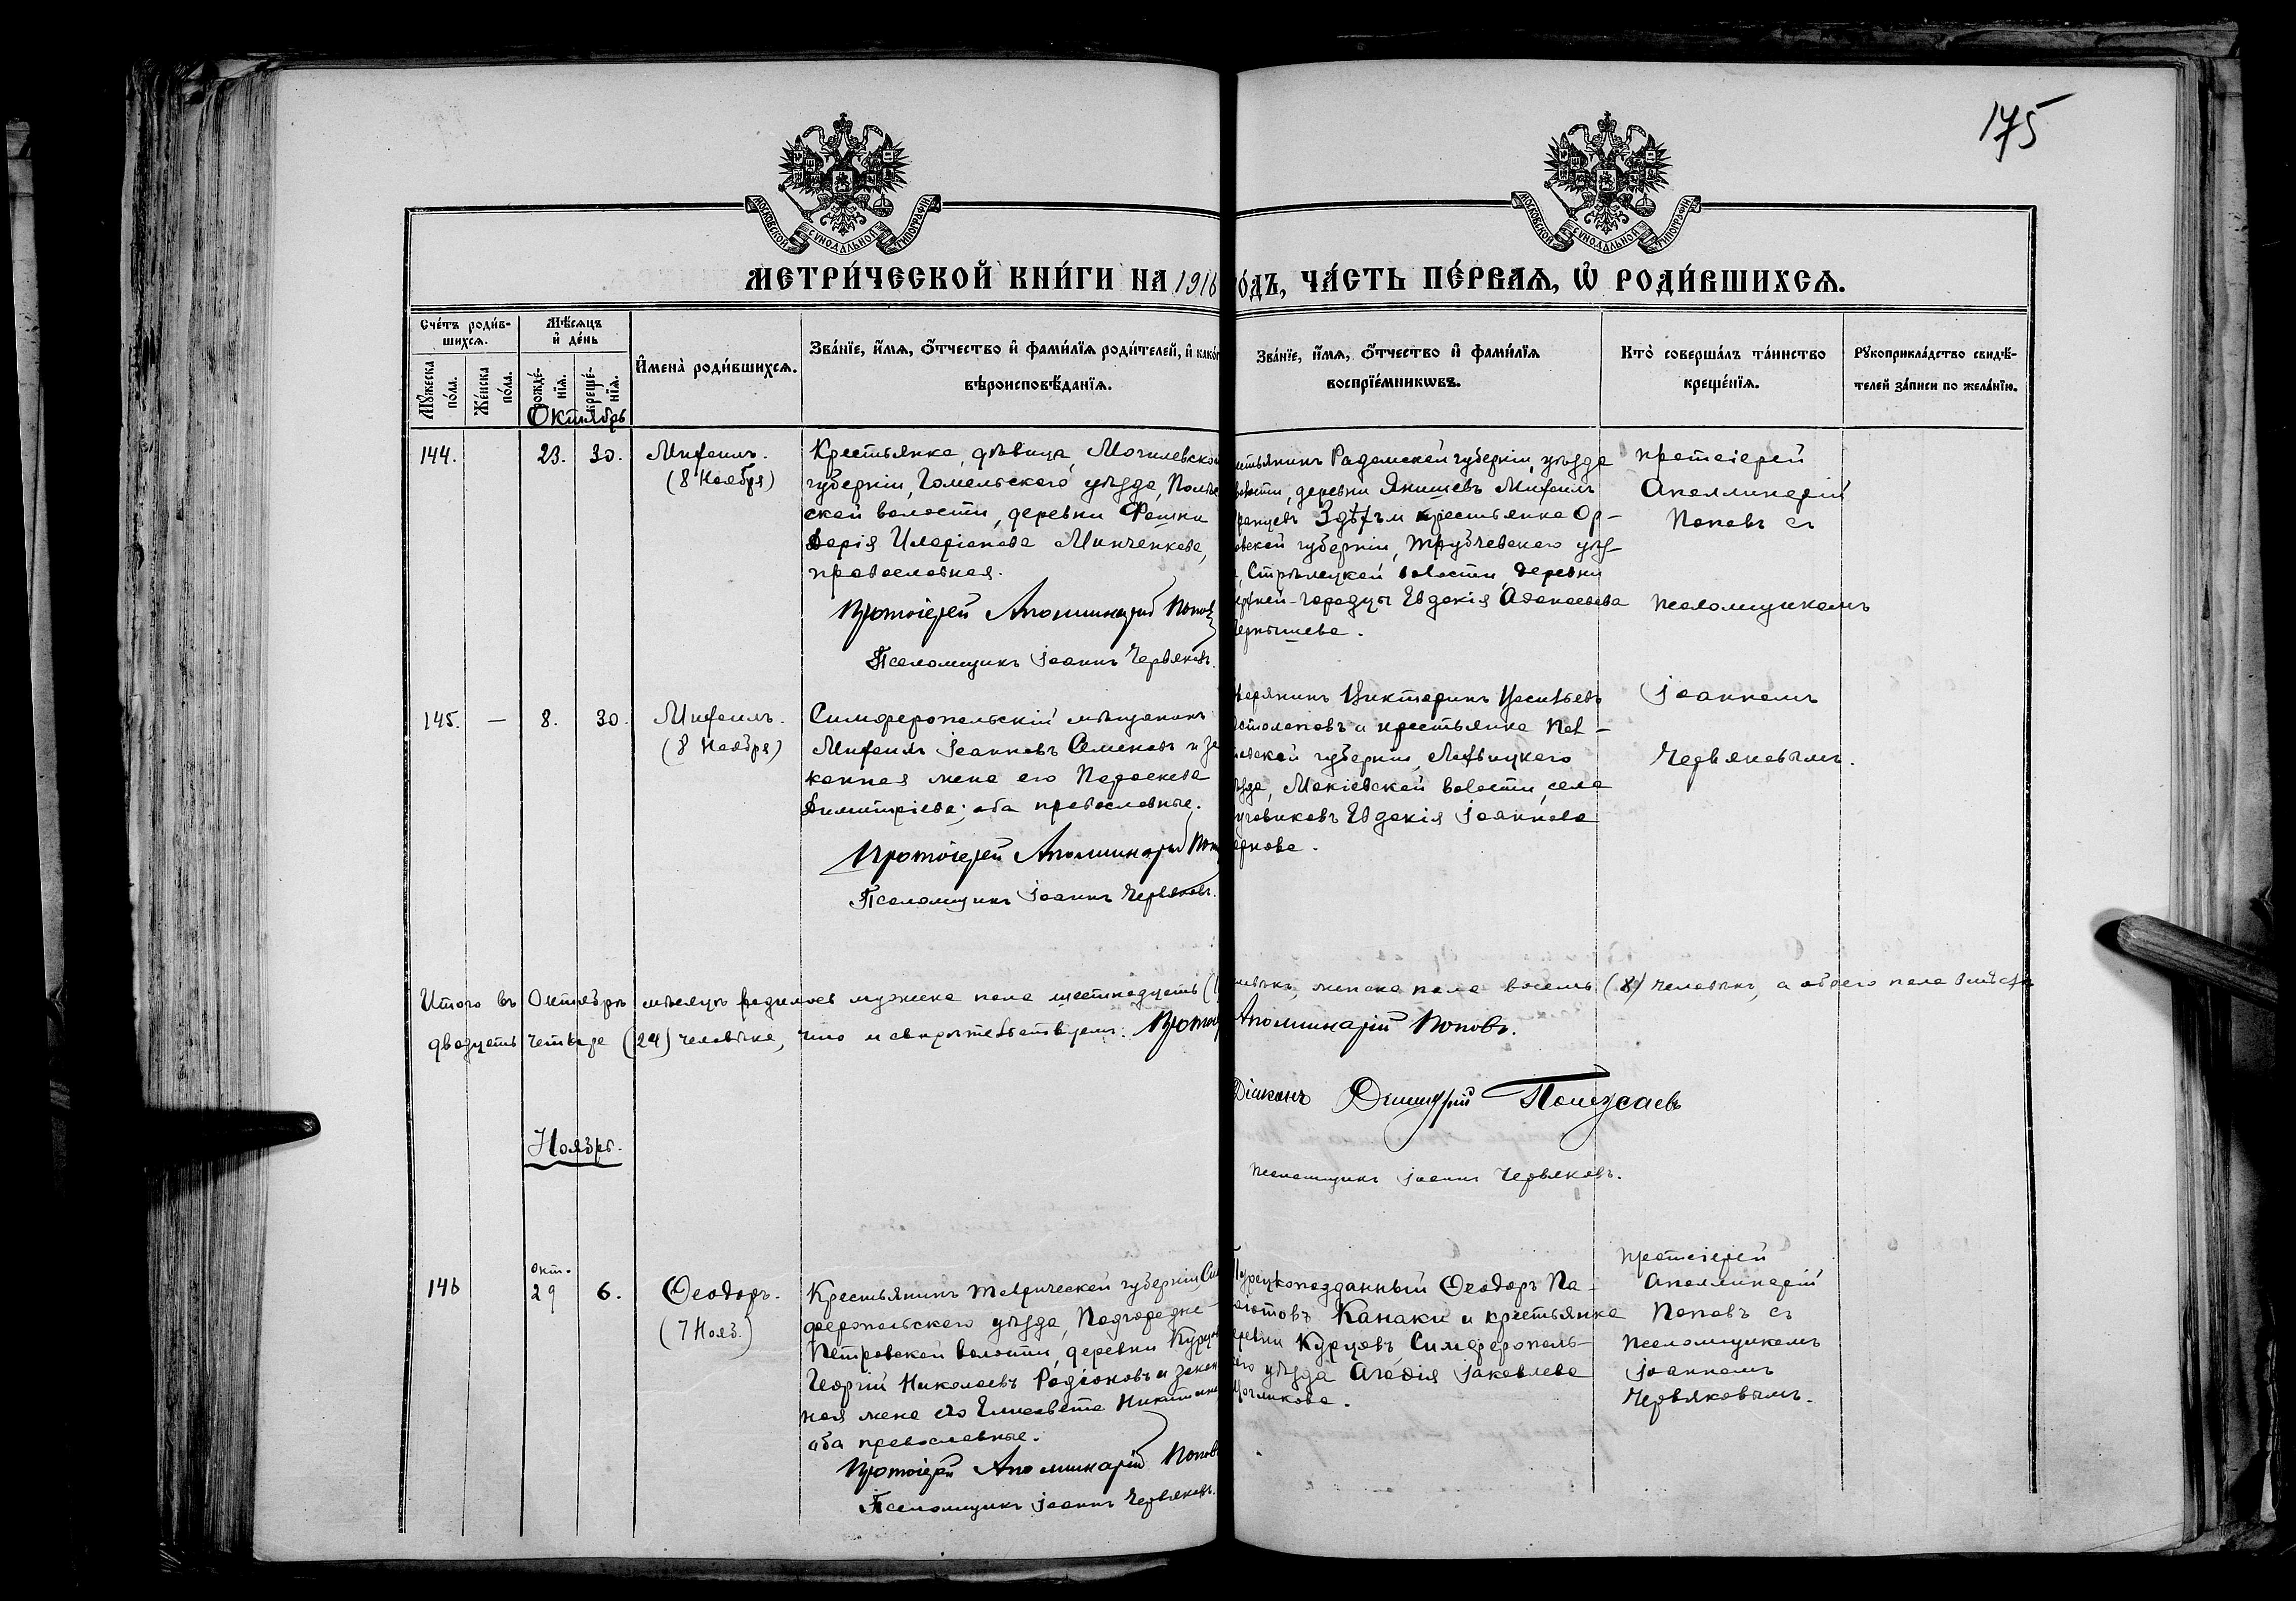 175
МОСКОВСКОЙ СУНОДАЛЬНОЙ ТИПОГРАФІИ
МОСКОВСКОЙ СУНОДАЛЬНОЙ ТИПОГРАФІИ
МЕТРИ́ЧЕСКОЙ КНИ́ГИ НА 1916
О́ДЪ, ЧА́СТЬ ПЕ́РВАЯ, Ѽ РОДИ́ВШИХСѦ.
Сче́тъ роди́вшихсѧ.
Мꙋ́жеска по́ла.
Же́нска по́ла.
Мѣ́сѧцъ и҆ де́нь
рожде́нїѧ.
креще́нїѧ.
И҆мена̀ роди́вшихсѧ.
Зва́нїе, и҆́мѧ, ѻ҆́тчество и҆ фами́лїѧ роди́телей, и҆ како́г
вѣроисповѣ́данїѧ.
Зва́нїе, и҆́мѧ, ѻ҆́тчество и҆ фами́лїѧ
воспрїе́мникѡвъ.
Кто̀ соверша́лъ та́инство
креще́нїѧ.
Рꙋкоприкла́дство свидѣ́-
телей за́писи по жела́нїю.
Октябрь
144.
23.
30.
Михаилъ.
(8 Ноября)
Крестьянка, дѣвица, Могилевской
губерніи, Гомельскаго уѣзда,
ской волости, деревни
Дарія Иларіонова Минченкова,
православная.
Протоіерей Аполлинарій Поповъ
Псаломщикъ Іоаннъ Червяковъ.
стьянинъ Радомской губерніи, уѣзда
волости, деревни Янишевъ Михаилъ
крестьянка Ор-
овской губерніи, Трубчевскаго уѣз-
, Стрѣлецкой волости, деревни
Городцы Евдокія
ернышева.
протоіерей
Аполлинарій
Поповъ съ
псаломщикомъ
145.
—
8.
30.
Михаилъ.
(8 Ноября)
Симферопольскій мѣщанинъ
Михаилъ Іоанновъ Семеновъ и за
конная жена его Параскева
Димитріева; оба православные.
Протоіерей Аполлинарій Поп
Псаломщикъ Іоаннъ Червяковъ.
дворянинъ Викторинъ Васильевъ
остолоповъ и крестьянка Пол-
тавской губерніи, Лохвицкаго
ѣзда, Мокіевской волости, села
уговиковъ Евдокія Іоаннова
ернова.
Іоанномъ
Червяковымъ.
Итого въ Октябрѣ мѣсяцѣ родилось мужеска пола шестнадцать (1
ловѣкъ, женска пола восемь (8) человѣкъ, а обоего пола вмѣстѣ
двадцать четыре (24) человѣка, что и свидѣтельствуемъ. Протоі
Аполлинарій Поповъ.
Діаконъ Димитрій
псаломщикъ Іоаннъ Червяковъ.
Ноябрь.
146
Окт.
29
6.
Ѳеодоръ.
(7 Нояб.)
Крестьянинъ Таврической губерніи, Сим
феропольскаго уѣзда, Подгородне-
Петровской волости, деревни Курцы
Георгій Николаевъ Родіоновъ и закон
ная жена его Елисавета Никитина
оба православные.
Протоіерей Аполлинарій Поповъ
Псаломщикъ Іоаннъ Червяковъ.
Турецкоподданный Ѳеодоръ Па-
Канаки и крестьянка
еревни Курцовъ Симферополь-
аго уѣзда Агаѳія Іаковлева
протоіерей
Аполлинарій
Поповъ съ
псаломщикомъ
Іоанномъ
Червяковымъ.